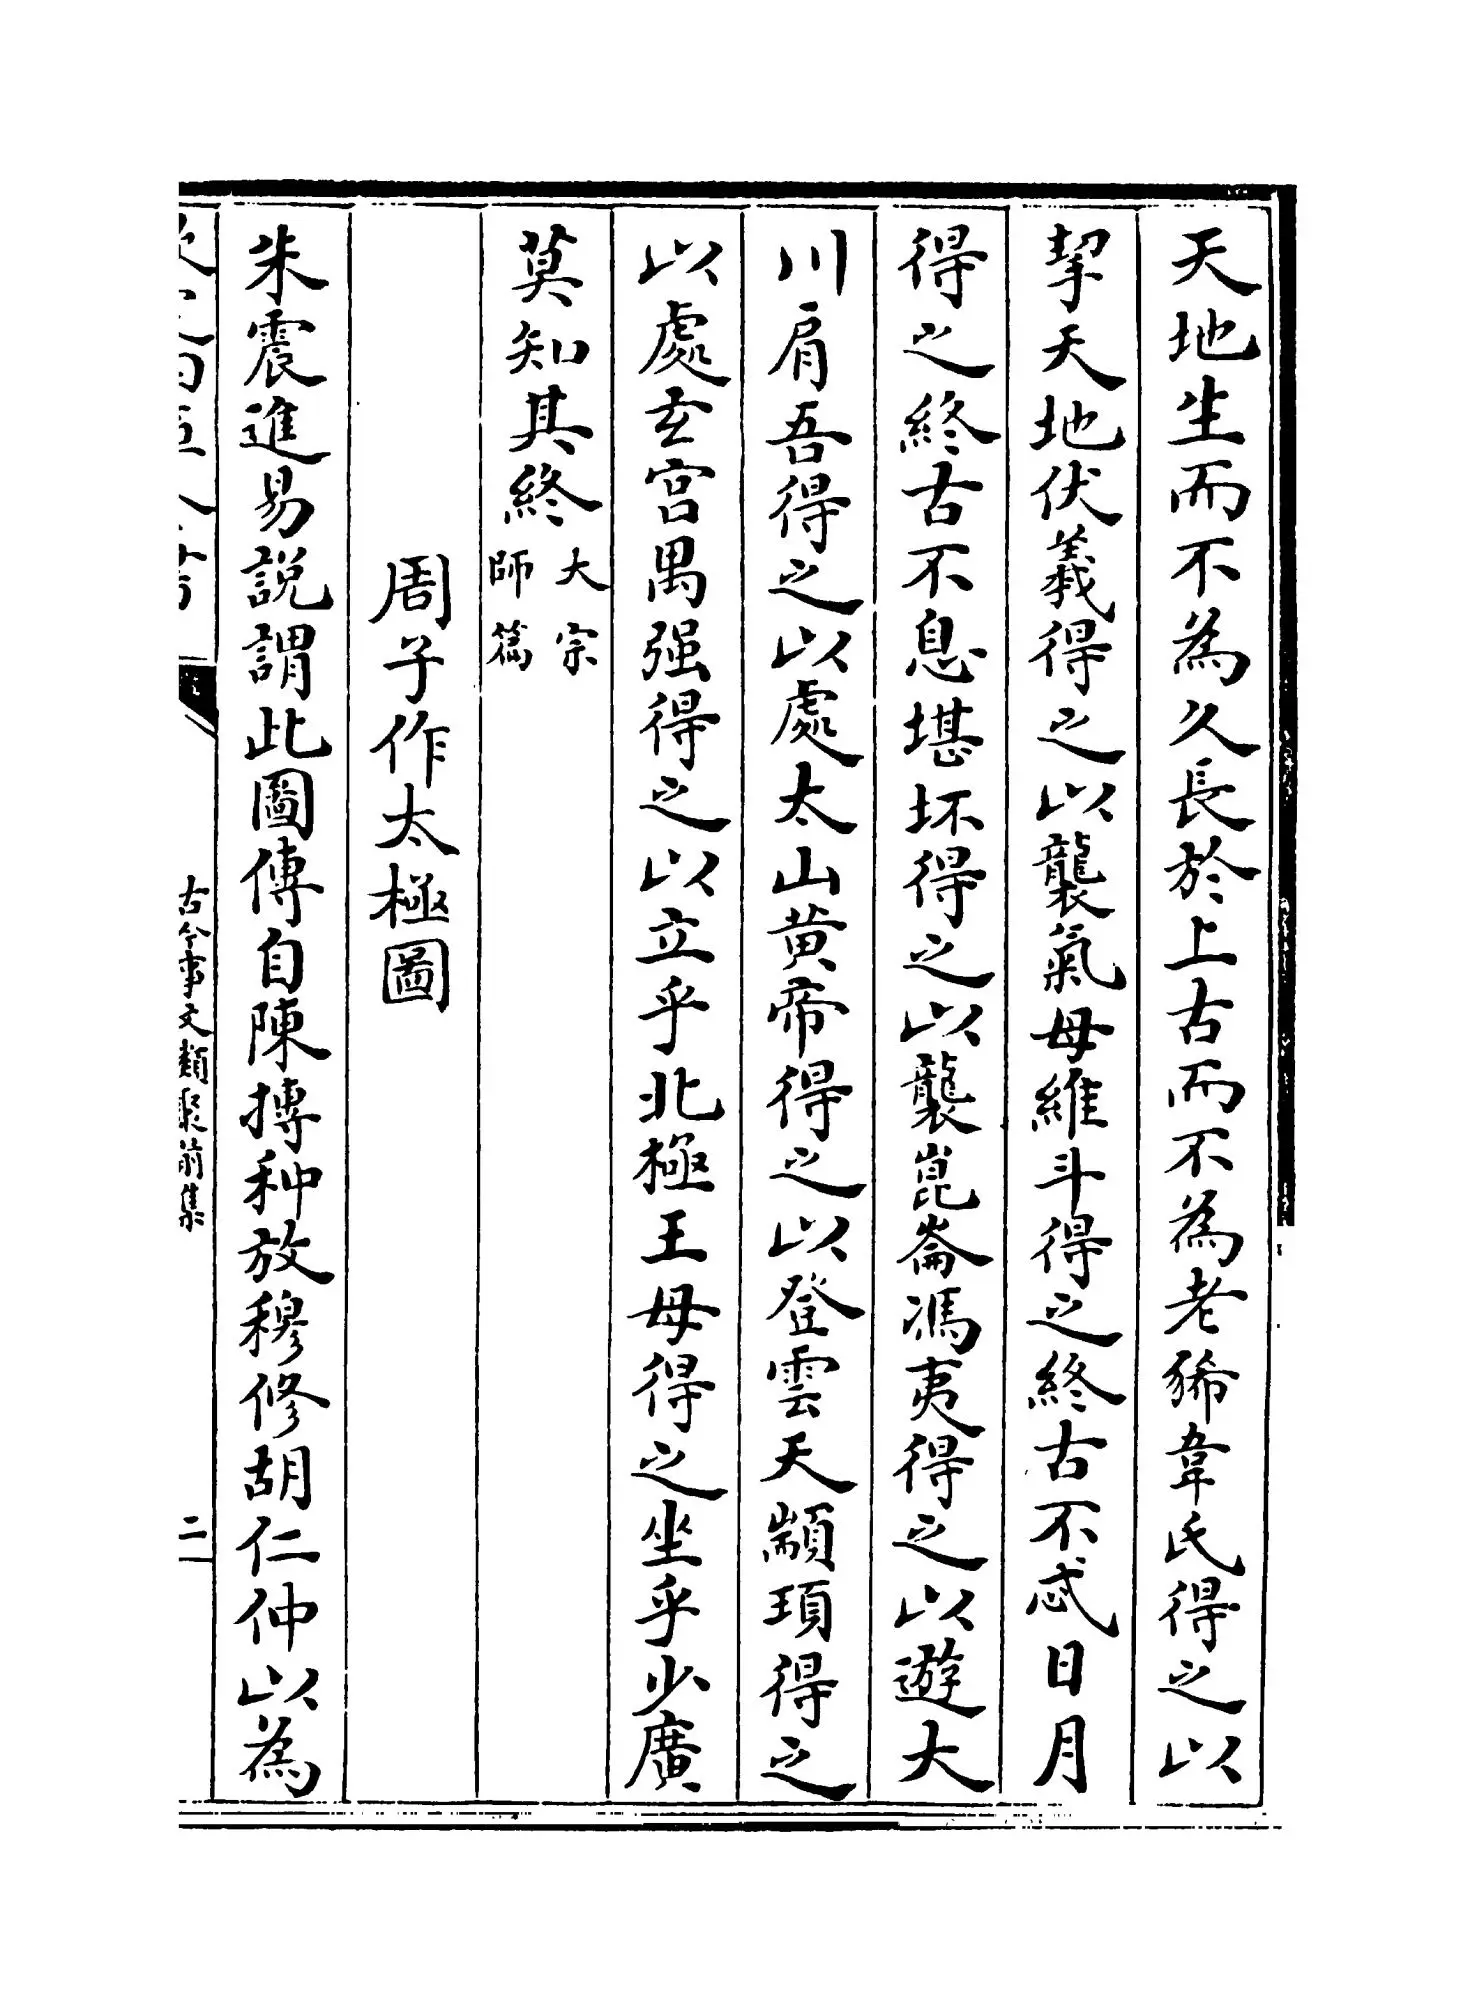 天地生而不為久長於上古而不為老豨韋氏得之以
挈天地伏羲得之以襲氣母維斗得之終古不忒日月
得之終古不息堪坏得之以襲崑崙馮夷得之以遊大
川肩吾得之以處太山黄帝得之以登雲天顓頊得之
以處玄宫禺强得之以立乎北極王母得之坐乎少廣
莫知其終大宗師篇
周子作太極圖
朱震進易說謂此圖傳自陳摶种放穆修胡仁仲以為
古今事文類聚前集
二